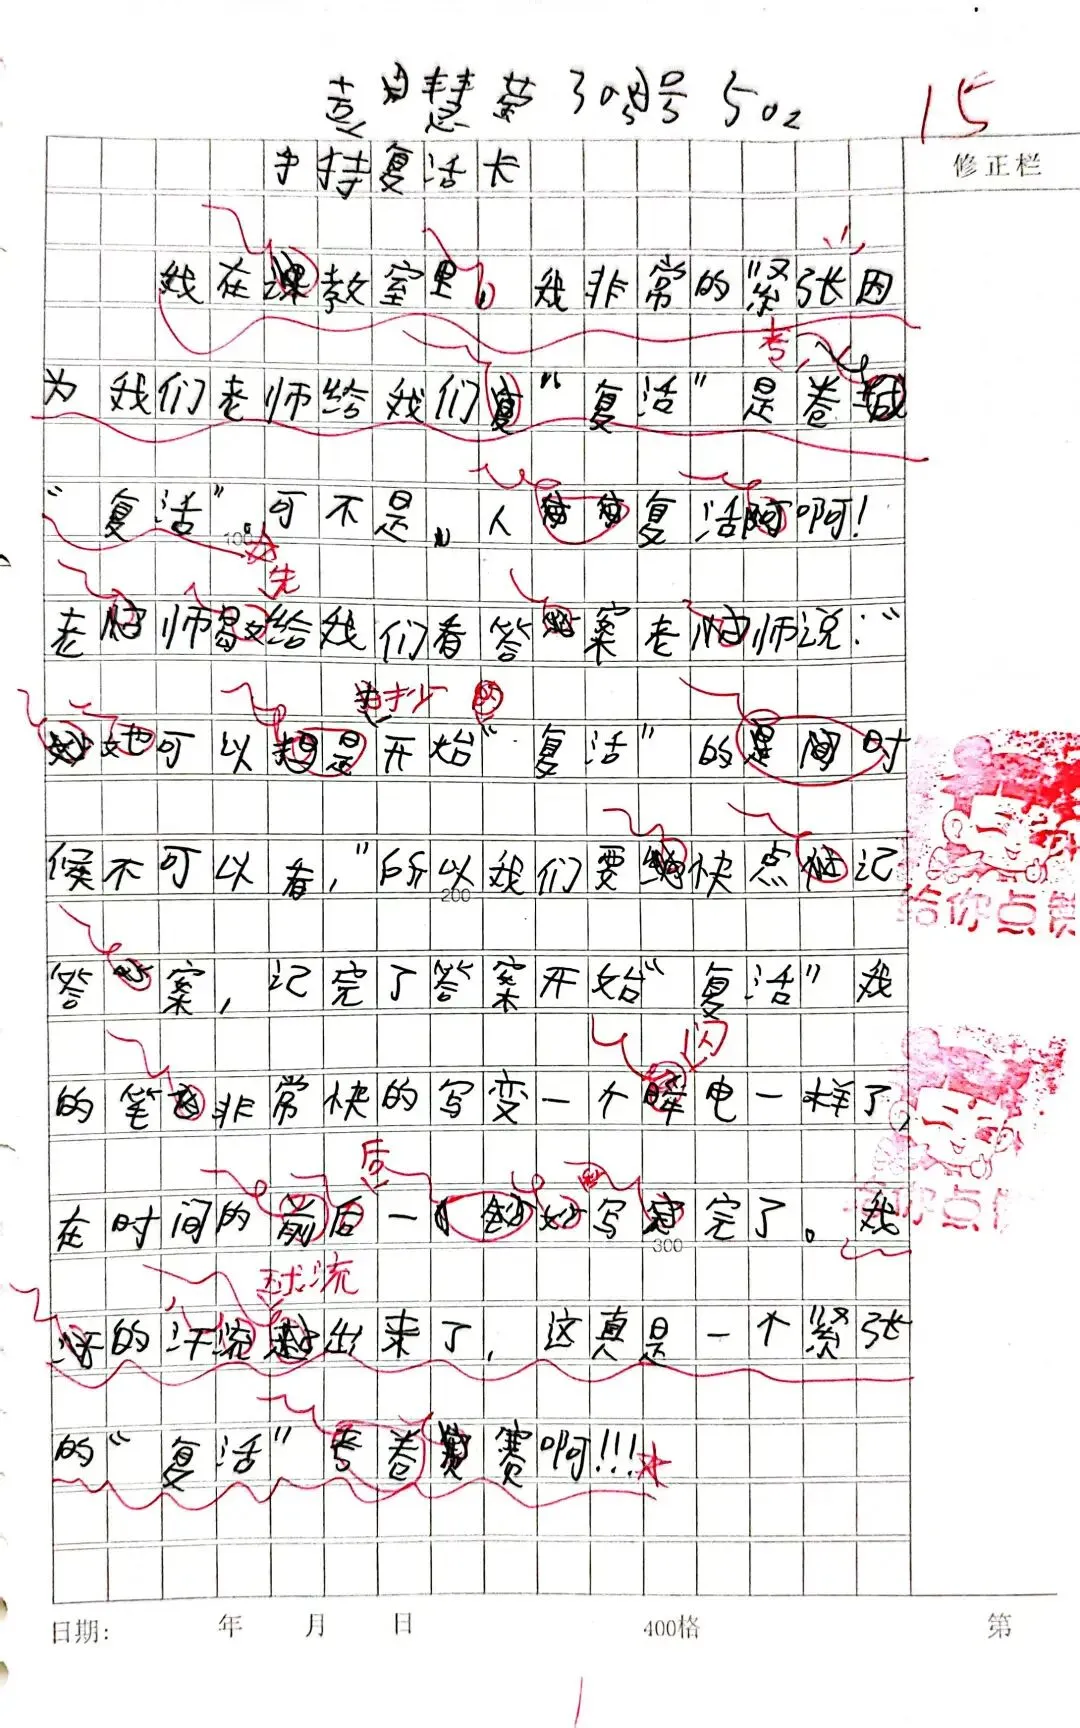 慧 30号 502
15
手持复活卡
修正栏
我在课教室里，我非常的紧张因
考
为我们老师给我们复“复活”是卷
“复活”可不是，人复活阿啊！
100
先
老师给我们看答案老师说：“
抄 的
她可以想是开始“复活”的是间时
候不可以看，”所以我们要快点记
200
给你点赞
答案，记完了答案开始“复活”我
闪
的笔非常快的写变一个电一样了，
后
在时间的前后一秒写完了。我
300
给你点
流
汗的汗流出来了，这真是一个紧张
的“复活”考卷赛赛啊!!!
日期： 年 月 日 400格 第